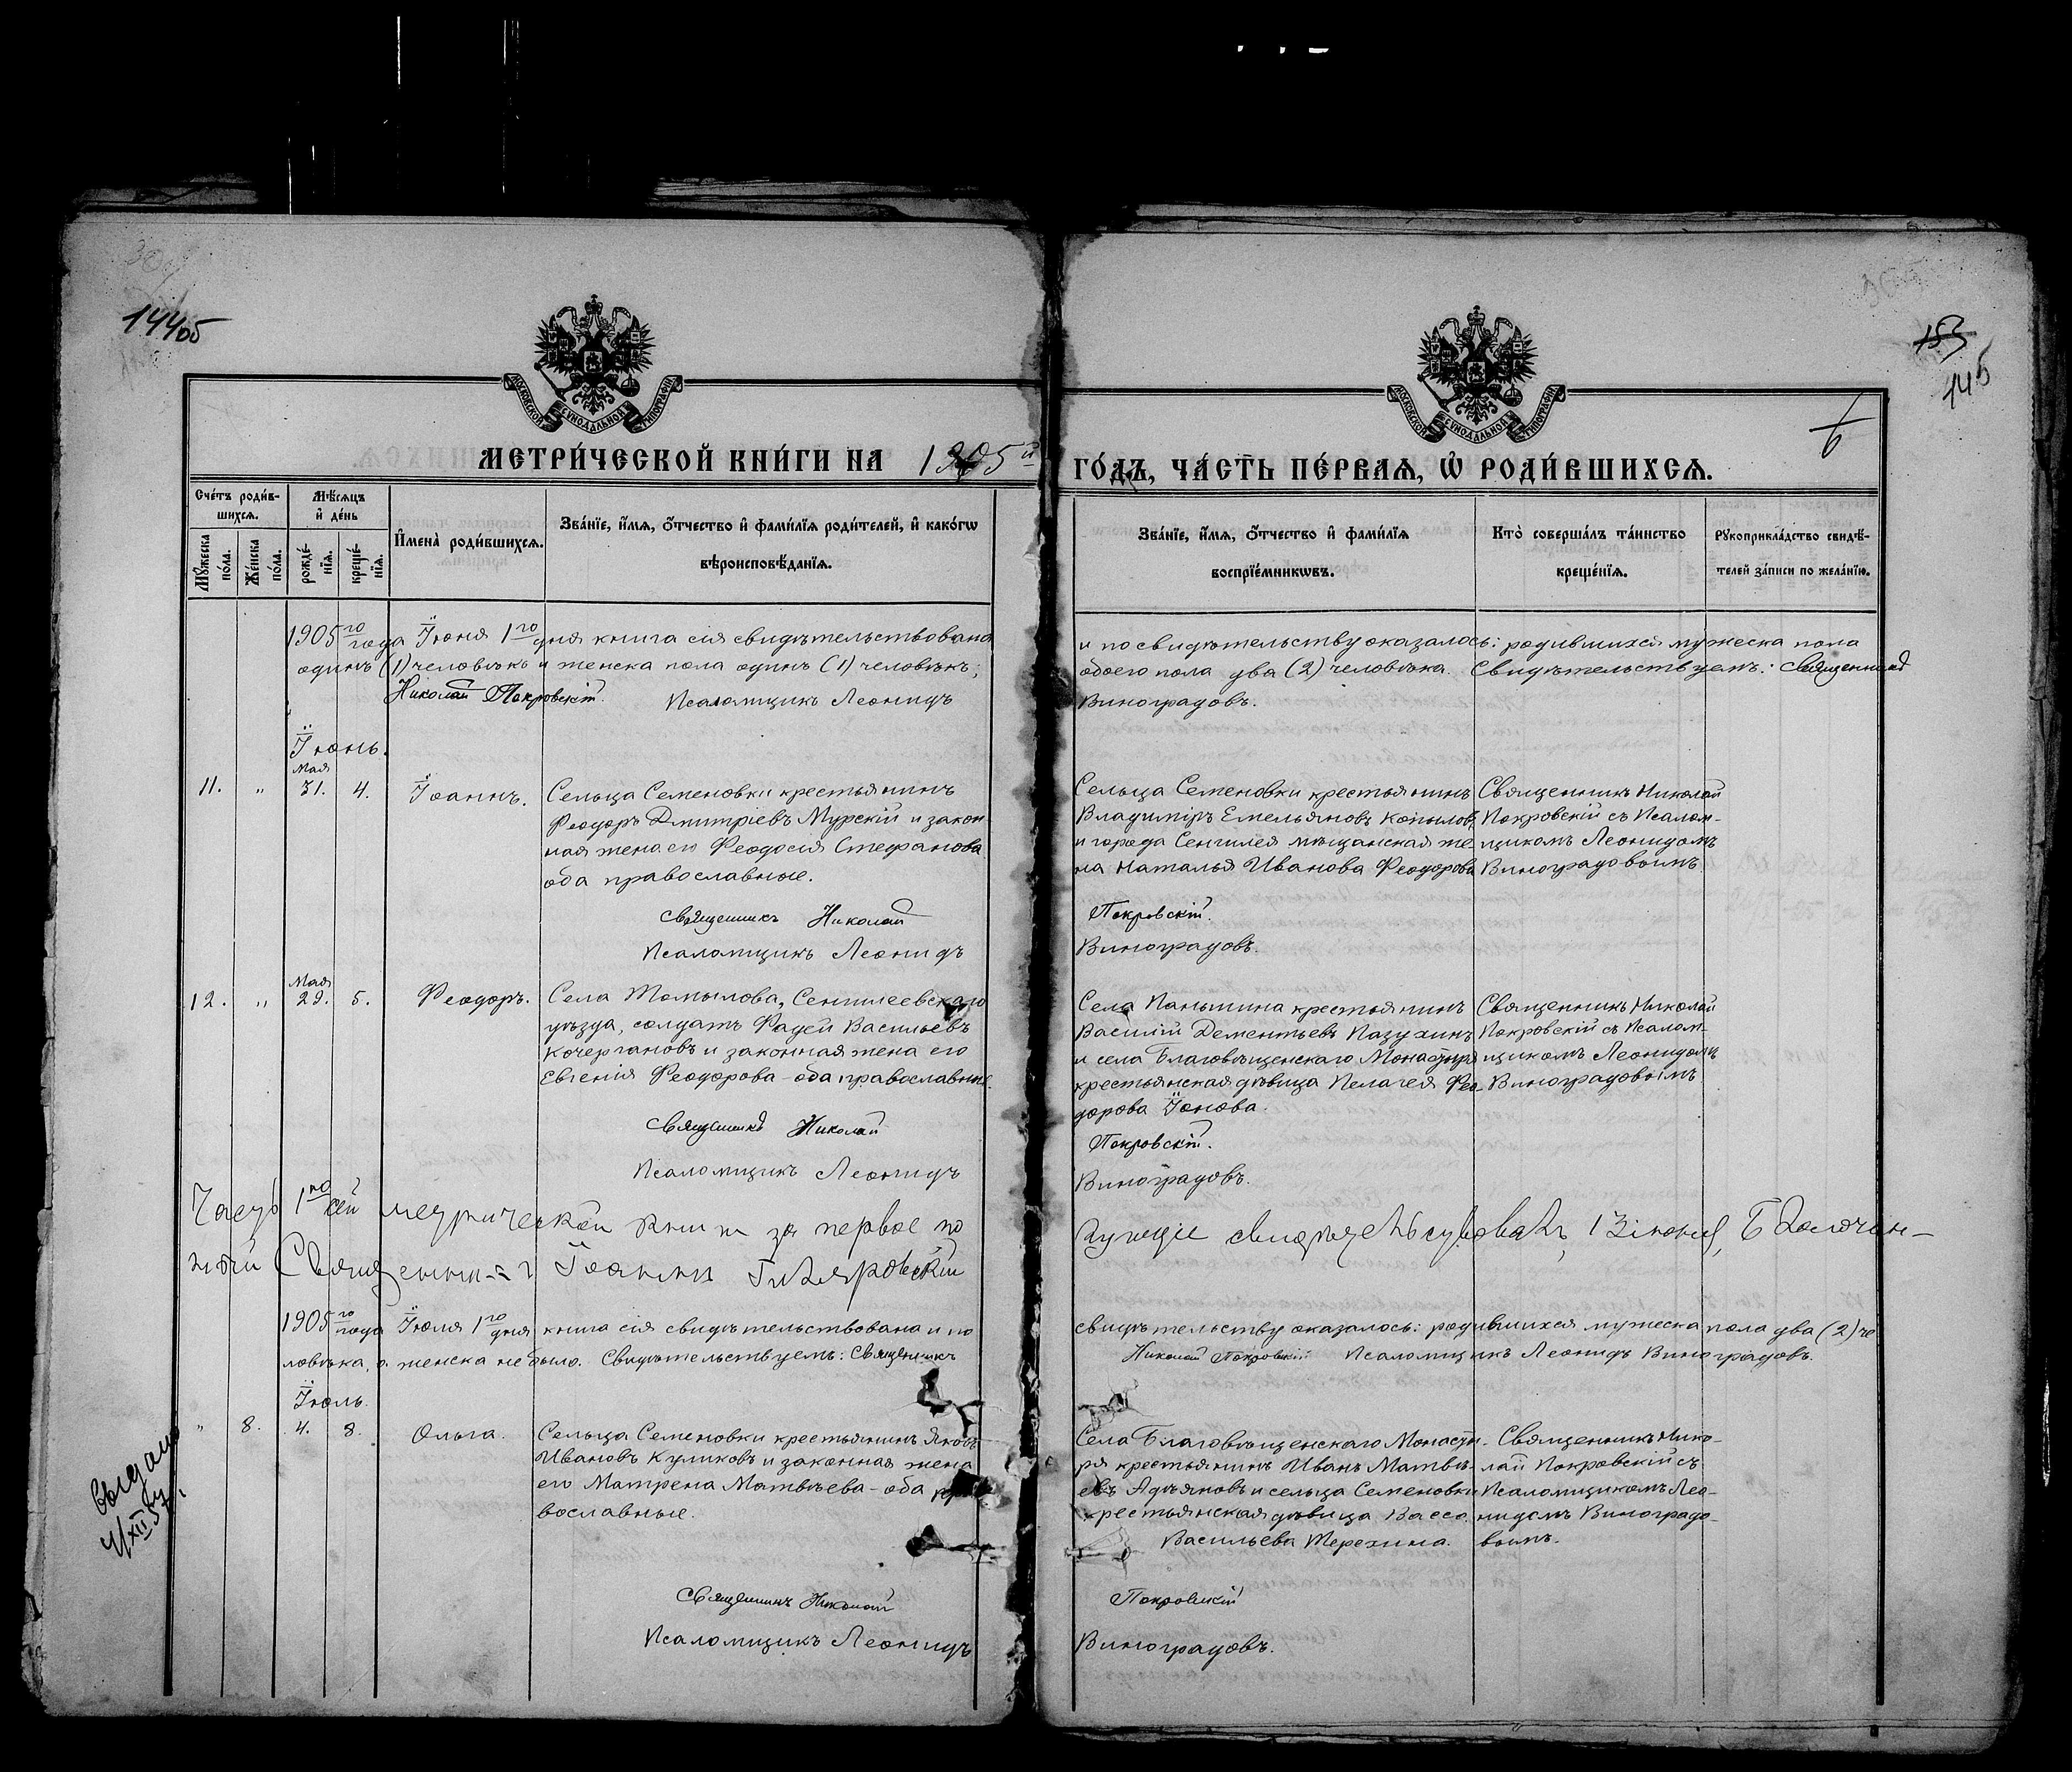 144об
153
145
6
МОСКОВСКОЙ СѴНОДАЛЬНОЙ ТИПОГРАФІИ
МОСКОВСКОЙ СѴНОДАЛЬНОЙ ТИПОГРАФІИ
МЕТРИ́ЧЕСКОЙ КНИ́ГИ НА 1905й ГО́ДЪ, ЧА́СТЬ ПЕ́РВАѦ, Ѡ҆ РОДИ́ВШИХСѦ.
Сче́тъ роди́вшихсѧ.
Мꙋ́жеска по́ла.
Же́нска по́ла.
Мѣ́сѧцъ и҆ де́нь
рожде́нїѧ.
креще́нїѧ.
И҆мена̀ роди́вшихсѧ.
Зва́нїе, и҆́мѧ, ѻ҆́тчество и҆ фами́лїѧ роди́телей, и҆ како́гѡ
вѣроисповѣ́данїѧ.
Зва́нїе, и҆́мѧ, ѻ҆́тчество и҆ фами́лїѧ
воспрїе́мникѡвъ.
Кто̀ соверша́лъ та́инство
креще́нїѧ.
Рꙋкоприкла́дство свидѣ́-
телей за́писи по жела́нїю.
1905го года Іюня 1го дня книга сія свидѣтельствована и по свидѣтельству оказалось: родившихся мужеска пола
одинъ (1) человѣкъ и женска пола одинъ (1) человѣкъ; обоего пола два (2) человѣка. Свидѣтельствуемъ: Священникъ
Николай Покровскій. Псаломщикъ Леонидъ Виноградовъ.
Іюнь.
Мая
11. " 31. 4. Іоаннъ.
Сельца Семеновки крестьянинъ
Феодоръ Дмитріевъ Мурскій и закон
ная жена его Феодосія Стефанова
оба православные.
Сельца Семеновки крестьянинъ
Владиміръ Емельяновъ Копылов,
и города Сенгилея мѣщанская же
на Наталья Иванова Феодорова
Священникъ Николай
Покровскій съ Псалом-
щикомъ Леонидомъ
Виноградовымъ.
Священникъ Николай Покровскій.
Псаломщикъ Леонидъ Виноградовъ.
Мая
12. " 29. 5. Феодоръ.
Села Томылова, Сенгилеевскаго
уѣзда, солдатъ Фадей Васильевъ
Кочергановъ и законная жена его
Евгенія Феодорова - оба православные.
Села Паньшина крестьянинъ
Василій Дементьевъ Пазухинъ
и села Благовѣщенскаго Монастыря
крестьянская дѣвица Пелагея Фео-
дорова Іонова.
Священникъ Николай
Покровскій съ Псалом-
щикомъ Леонидомъ
Виноградовымъ
Священникъ Николай Покровскій.
Псаломщикъ Леонидъ Виноградовъ.
Часть 1ю сей метрической книги за первое по лугодіе свидѣтельствовалъ, 13 іюня, Благочин-
ный Священникъ Іоаннъ Гиляровскій
1905го года Іюля 1го дня книга сія свидѣтельствована и по свидѣтельству оказалось: родившихся мужеска пола два (2) че
ловѣка, а женска не было. Свидѣтельствуемъ: Священникъ Николай Покровскій Псаломщикъ Леонидъ Виноградовъ.
Іюль.
" 8. 4. 8. Ольга.
Сельца Семеновки крестьянинъ Яковъ
Ивановъ Куликовъ и законная жена
его Матрена Матвѣева - оба пра
вославные.
Села Благовѣщенскаго Монасты-
ря крестьянинъ Иванъ Матвѣ-
евъ Адѣяновъ и сельца Семеновки
крестьянская дѣвица Васса
Васильева Терехина.
Священникъ Нико-
лай Покровскій съ
Псаломщикомъ Лео-
нидомъ Виноградо-
вымъ.
Священникъ Николай Покровскій
Псаломщикъ Леонидъ Виноградовъ.
Выдано
4/XII 57 г.